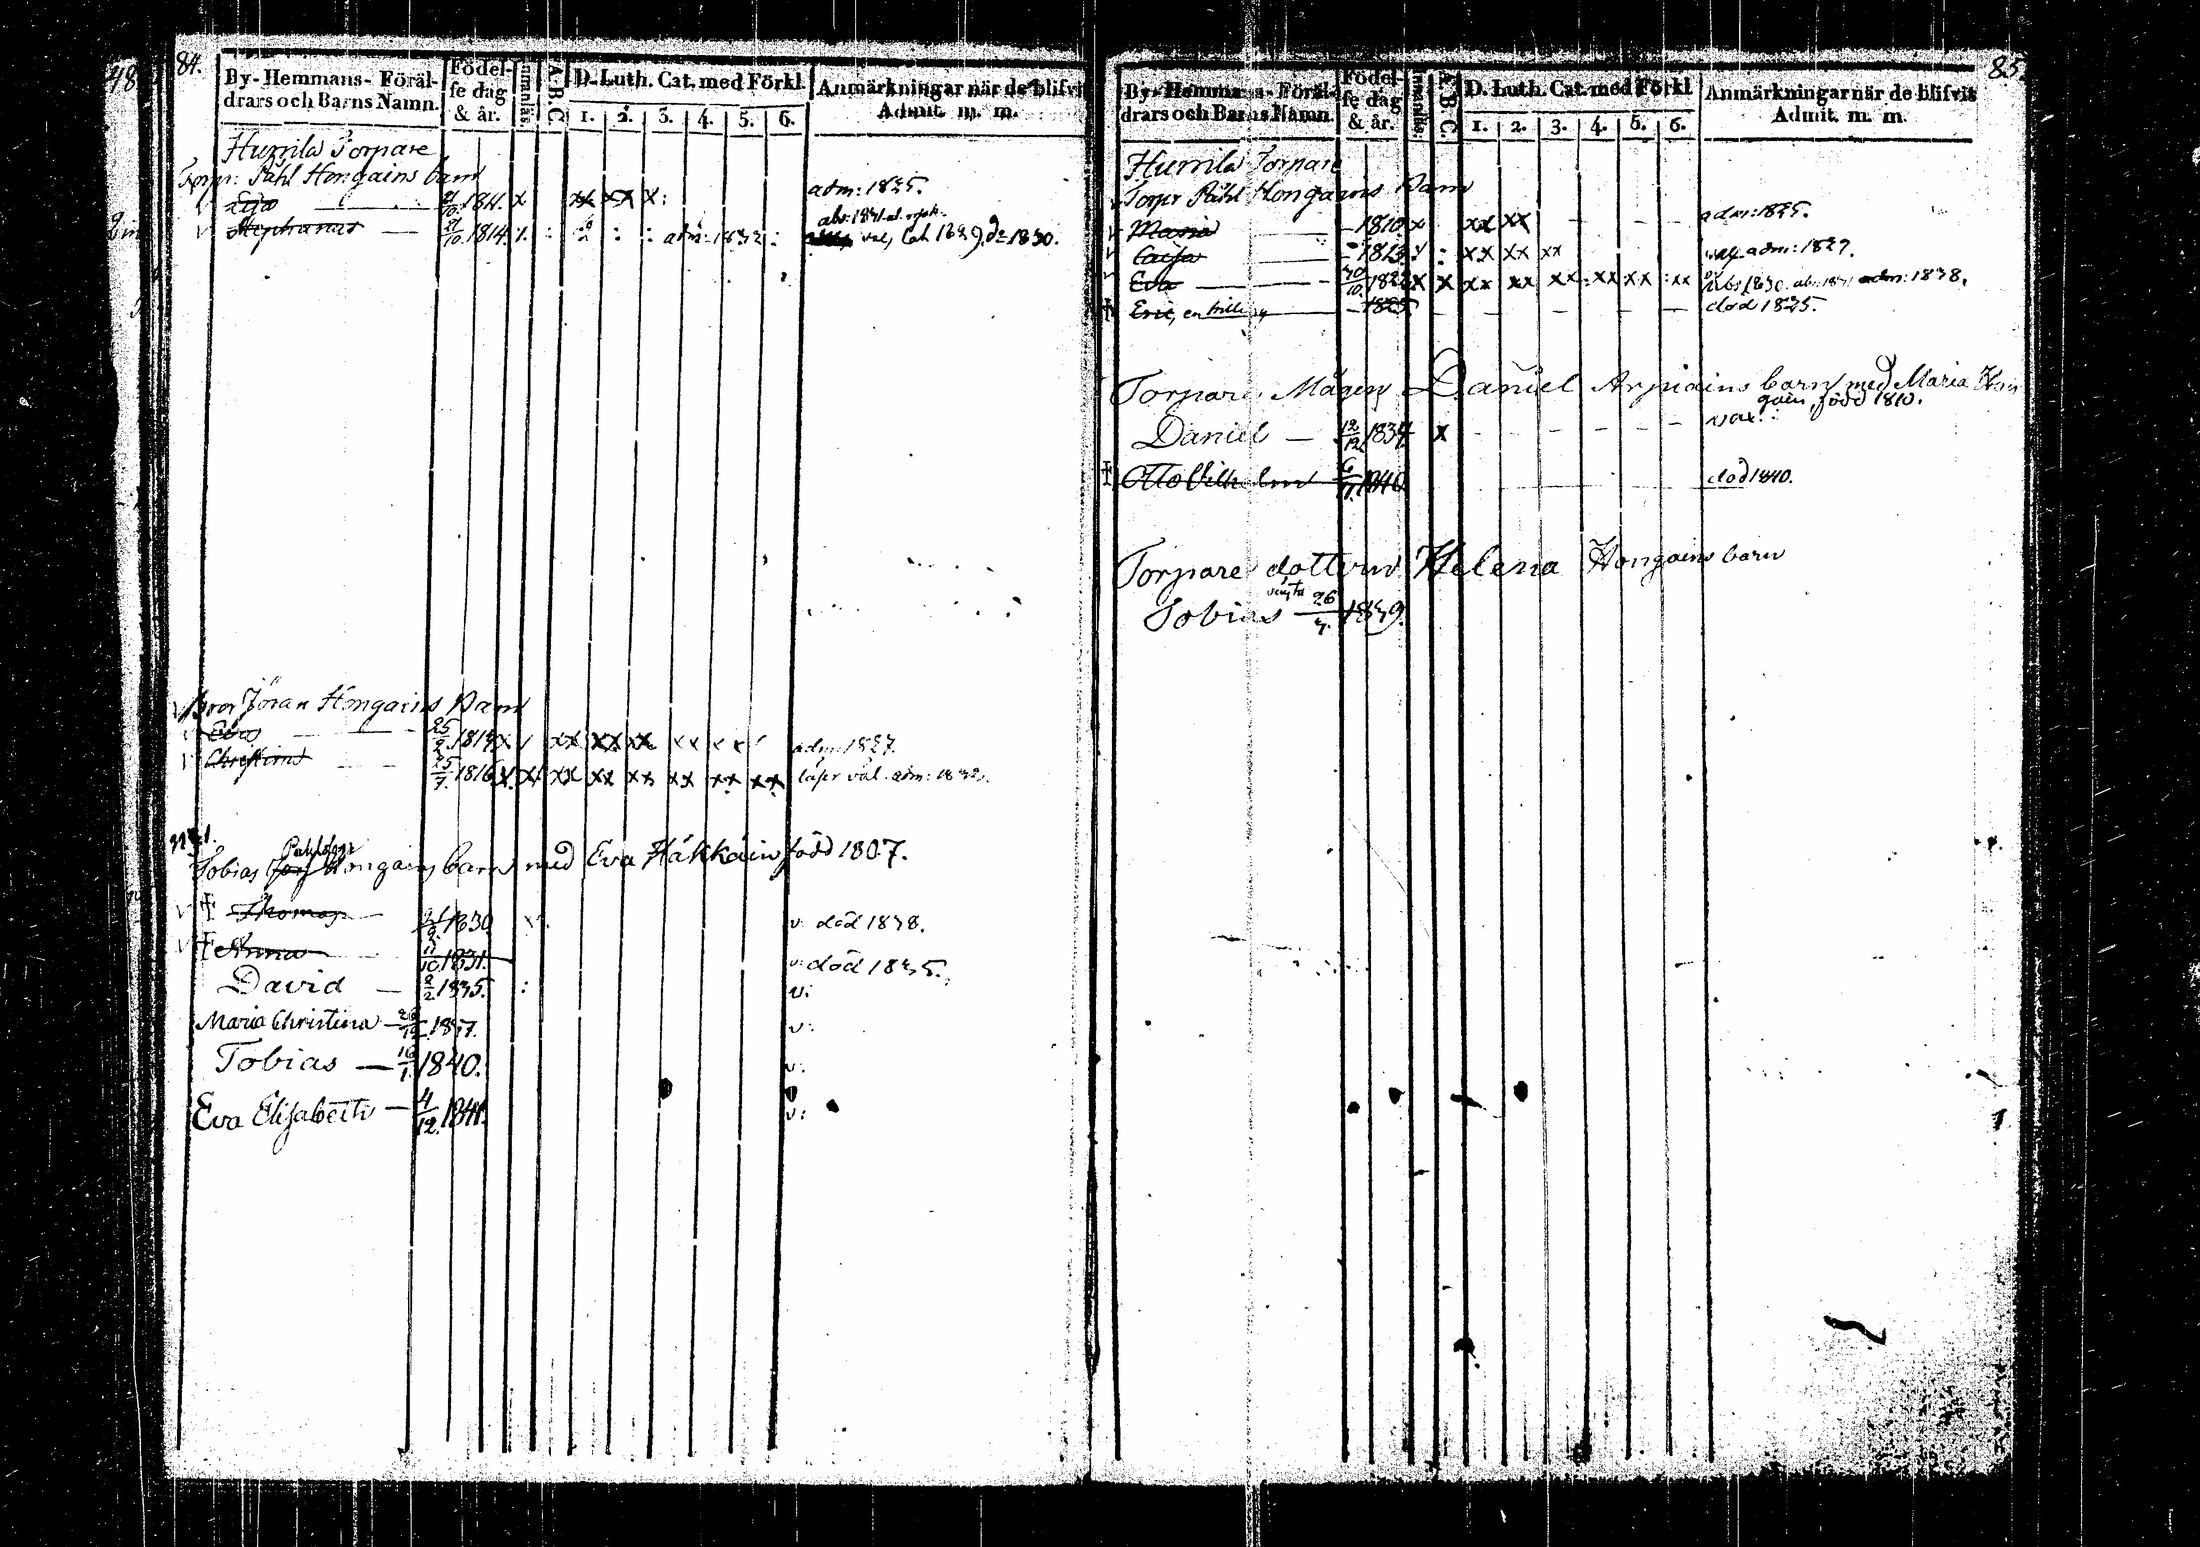 84.
By-Hemmans-Föräl-
drars och Barns Namn.
Födel-
se dag
& år.
A.B.C.
D. Luth. Cat. med Förkl
1. 2. 3. 4. 5. 6.
Anmärkningar när de blifvit
Admit. m. m.
Hurrila Torpare
Torpr: Påhl Hongains barn
1811. x xx xx x: adm: 1825.
Stephanus 21/10. 1814. adm: 1832 val, 1829. do 1830.
Bror Jöran Hongains Barn
25/2. 1812 x xx xx xx xx xx adm: 1827.
Christina 25/7. 1816 x. xx xx xx xx xx xx xx läser väl. adm: 1832.
Tobias Hongains barn med Eva Häkkäin född 1807.
Thomas 1830 v: död 1838.
Anna 11/10. 1831. v: död 1835.
David 2/2. 1835. : v:
Maria Christina 1837. v:
Tobias 16/1. 1840. v:
Eva Elisabeth 4/12. 1841. v:
85.
By-Hemmans-Föräl-
drars och Barns Namn.
Födel-
se dag
& år.
A.B.C.
D. Luth. Cat. med Förkl
1. 2. 3. 4. 5. 6.
Anmärkningar när de blifvit
Admit. m. m.
Hurrila Torpare
Torpr Påhl Hongains Barn
Maria 1810 x xx xx adm: 1825.
Caisa 1813. xx xx xx adm: 1829.
Eva 30/10. 1822 x x xx xx xx xx xx xx adm: 1838.
Eric, en 1825 död 1835.
Torpare Mågen Daniel Arpiains barn med Maria Hon
gain, född 1810.
Daniel 12/12 1834 x vac:
Otto Vilhelm 1840 död 1840.
Torpare dottern Helena Hongains barn
Tobias 26/7. 1839.